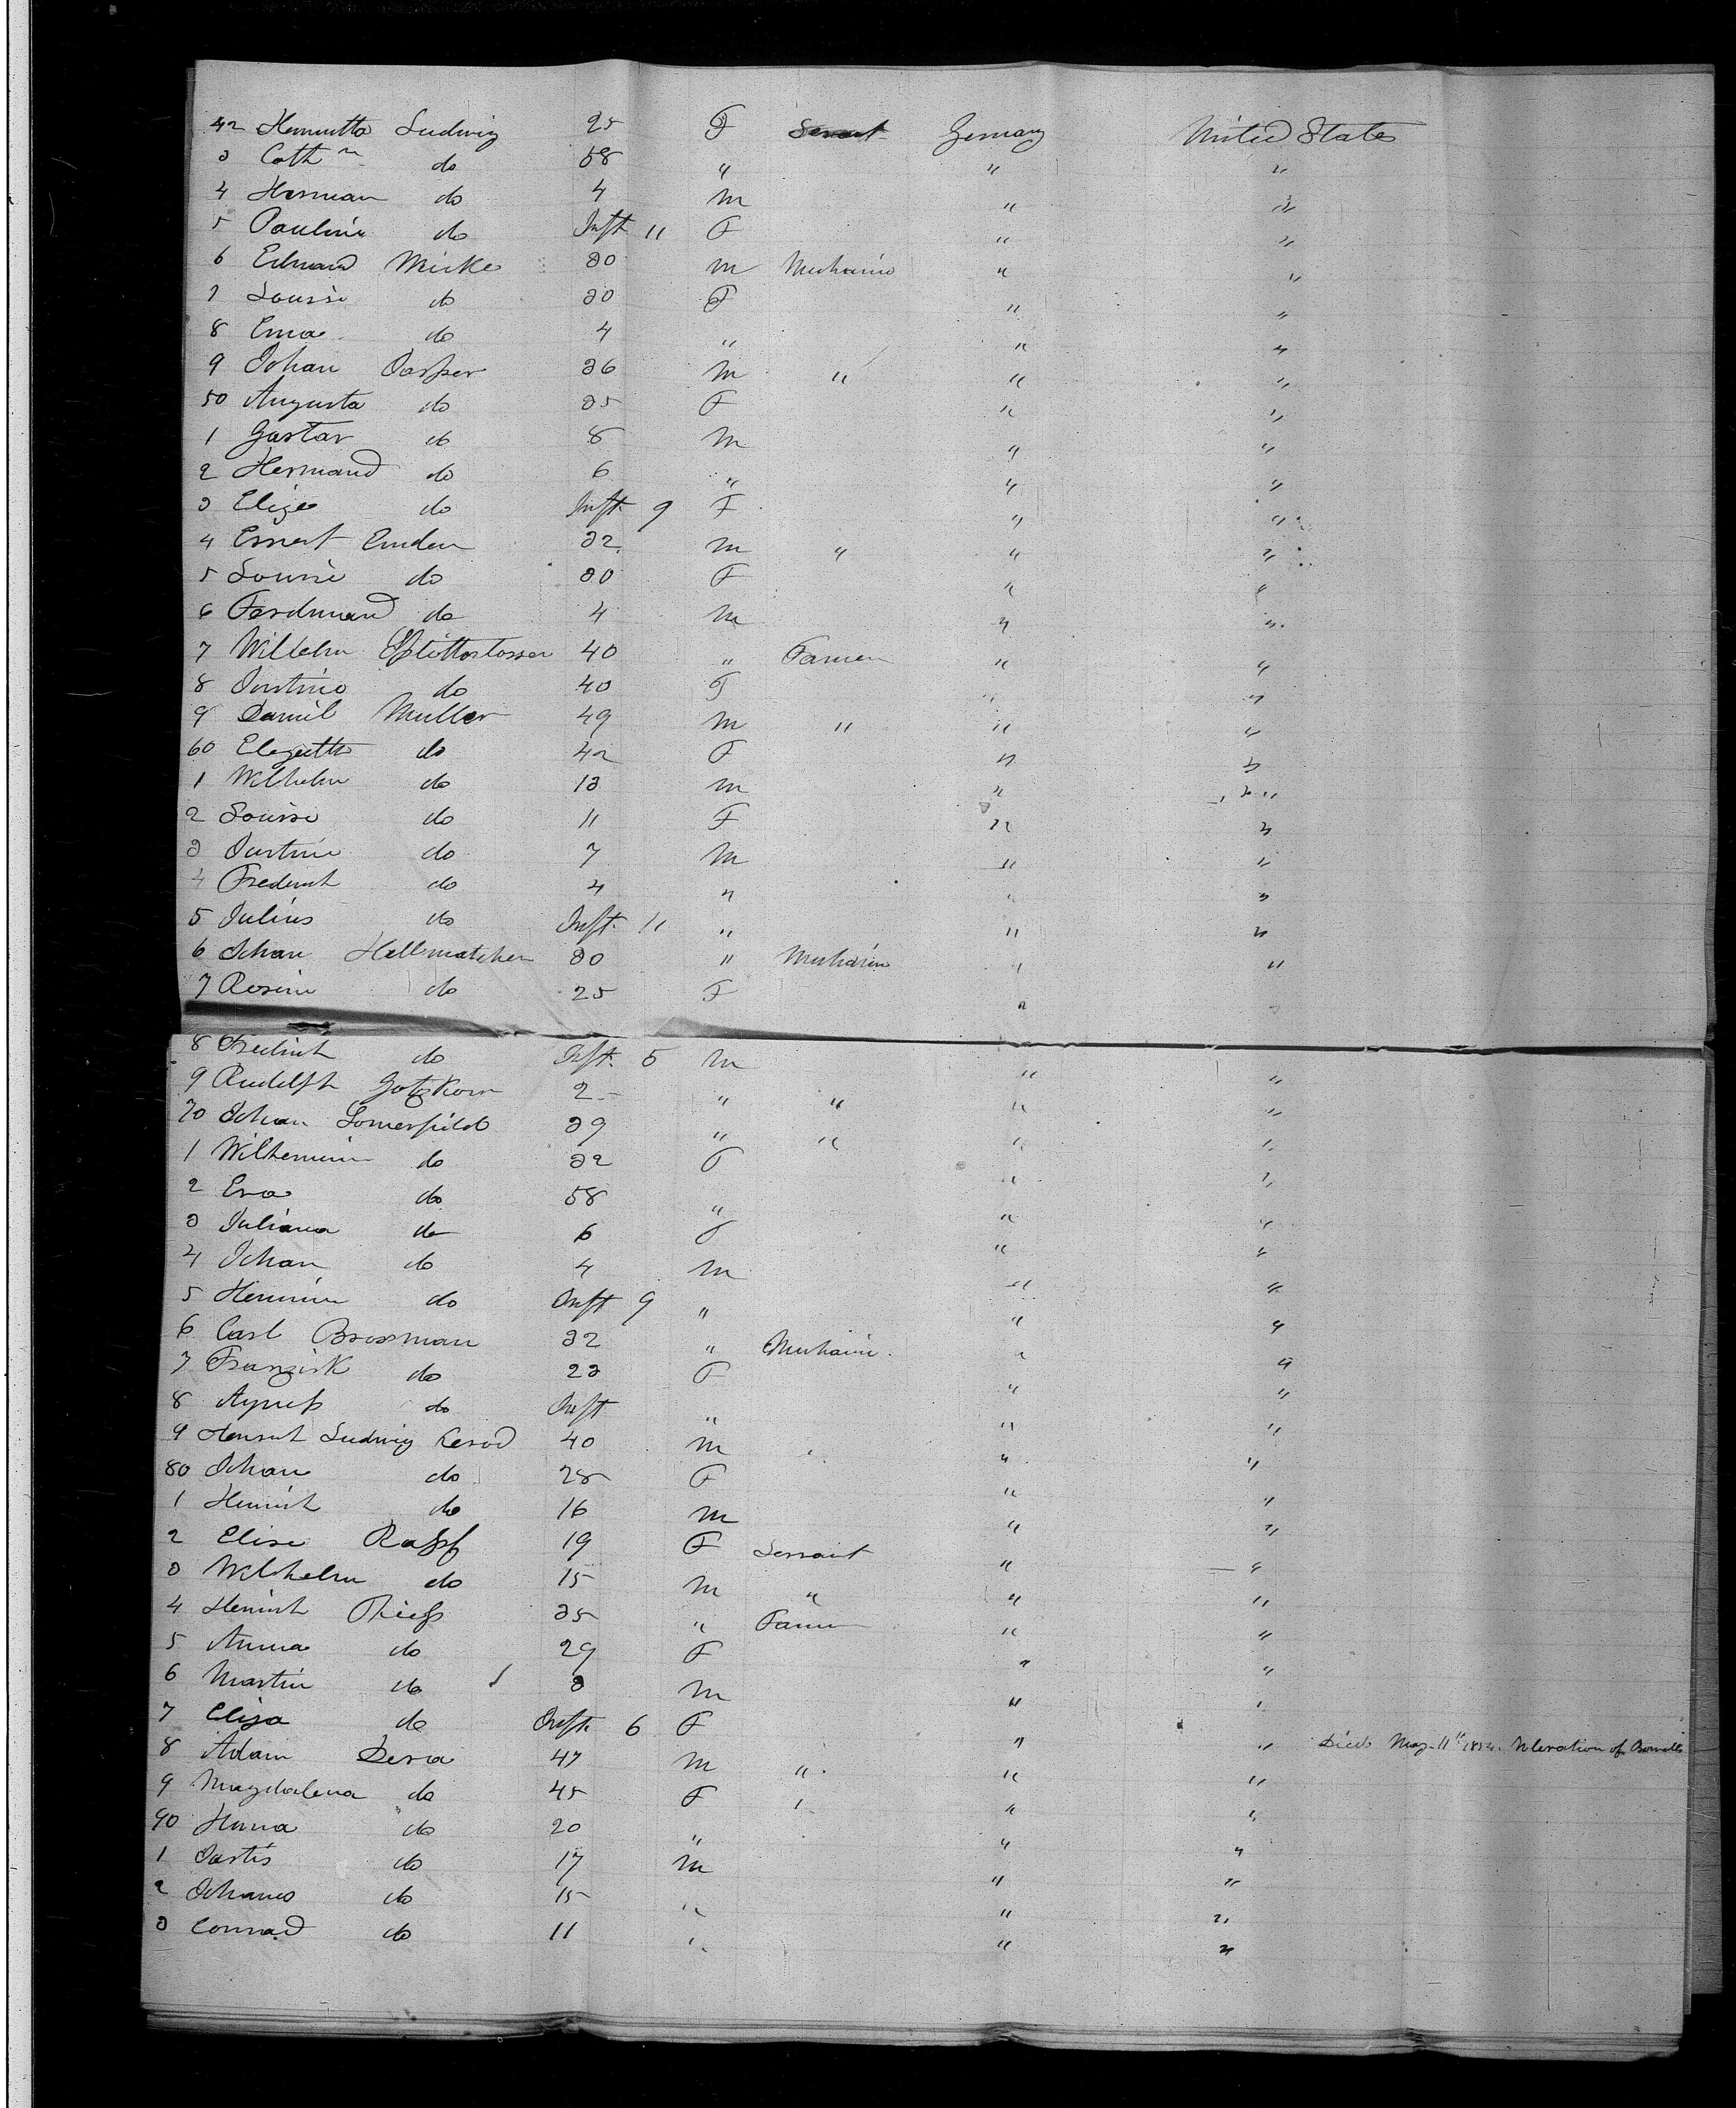 42 Henrietta Ludwig 25 F Servant Germany United States
3 Cathn do 58 " " "
4 Herman do 4 m " "
5 Pauline do Inft 11 F " "
6 Edward Micke 30 m Mechanic " "
7 Louise do 30 F " "
8 Ema do 4 " " "
9 Johan Jasper 36 m " " "
50 Augusta do 35 F " "
1 Gustav do 8 m " "
2 Hermand do 6 " " "
3 Elize do Inft 9 F " "
4 Ernest Emden 32 m " " "
5 Louise do 30 F " "
6 Ferdinand do 4 m " "
7 Wilhelm 40 " Farmer " "
8 Justine do 40 F " "
9 Daniel Muller 49 m " " "
60 Elizabeth do 42 F " "
1 Wilhelm do 13 m " "
2 Louise do 11 F " "
3 Justine do 7 m " "
4 Frederich do 4 " " "
5 Julius do Inft 11 " " "
6 Johan Hellmatchen 30 " Mechanic " "
7 Rosine do 25 F " "
8 Fredrich do Inft. 5 m " "
9 Rudolph Gotzkow 2 " " " "
70 Johan Somerfield 39 " " " "
1 Wilhemine do 32 F " "
2 Eva do 58 " " "
3 Juliana do 6 F " "
4 Johan do 4 m " "
5 Hermine do Inft 9 " " "
6 Carl Brossman 32 " Mechanic " "
7 Franzisk do 23 F " "
8 Agness do Inft " " "
9 Henrich Ludwig 40 m " " "
80 Johan do 28 F " "
1 Henrich do 16 m " "
2 Elise Rapp 19 F Servant " "
3 Wilhelm do 15 m " " "
4 Heinrich Thiess 35 " Farmer " "
5 Anna do 29 F " "
6 Martin do 3 m " "
7 Eliza do Inft 6 F " " Died May 11th 1854. Ulceration of Bowells
8 Adam Dera 47 m " " "
9 Magdalena do 45 F " " "
90 Hanna do 20 " " "
1 Jastis do 17 m " "
2 Johanes do 15 " " "
3 Conrad do 11 " " "